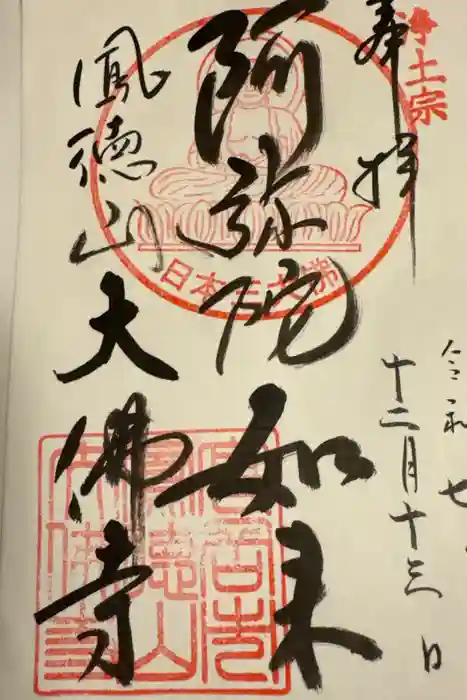 浄土宗
奉拝
令和七
十二月十三日
阿弥陀如来
鳳徳山
大佛寺
日本三大佛